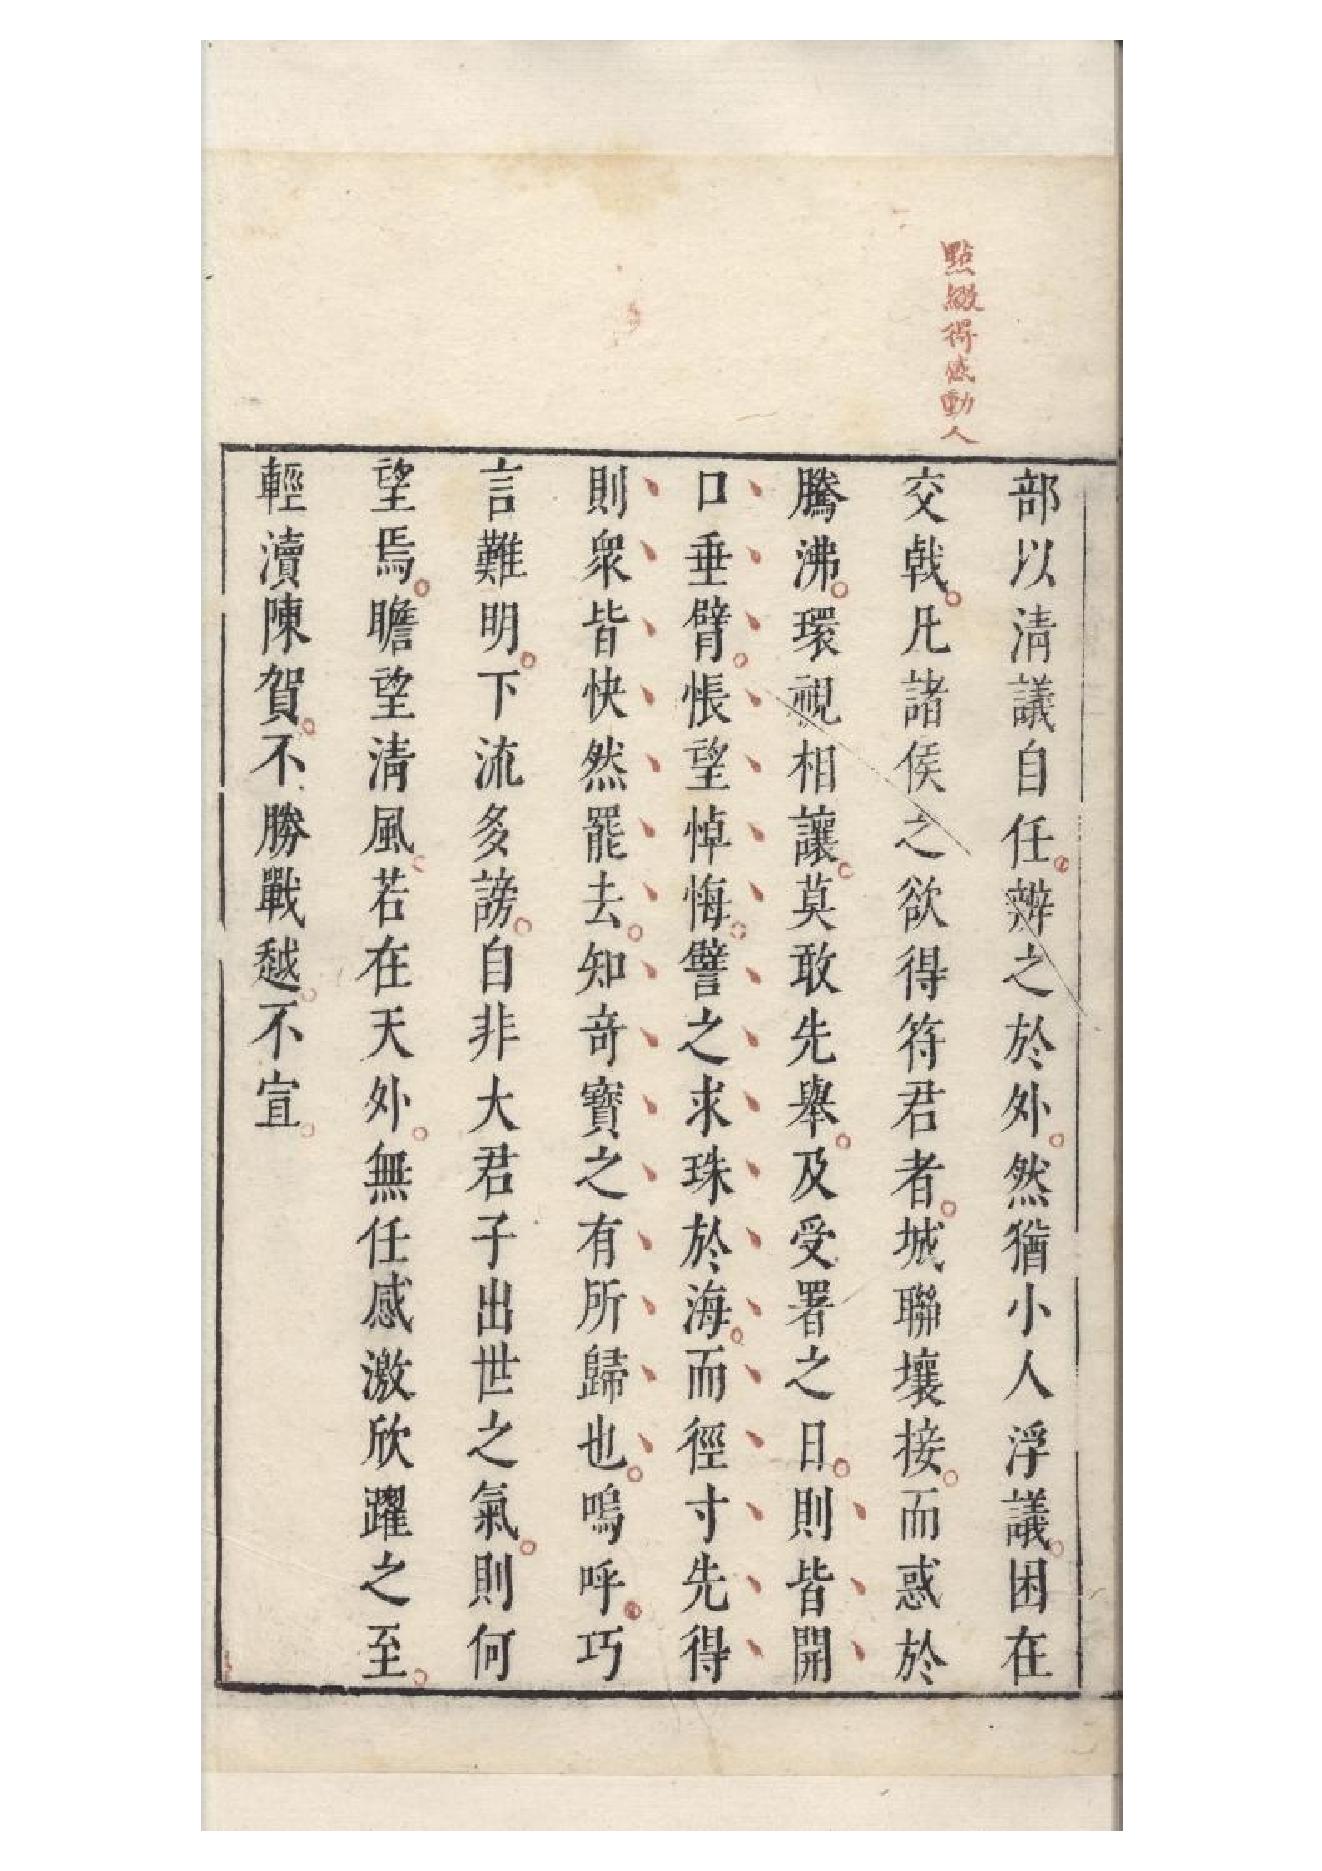 點綴得感動人
部以清議自任辨之於外然猶小人浮議困在
交戟凡諸侯之欲得符君者城聯壤接而惑於
騰沸環視相讓莫敢先舉及受署之日則皆開
口垂臂悵望悼悔譬之求珠於海而徑寸先得
則衆皆怏然罷去知奇寶之有所歸也嗚呼巧
言難明下流多謗自非大君子出世之氣則何
望焉瞻望清風若在天外無任感激欣躍之至
輕瀆陳賀不勝戰越不宣